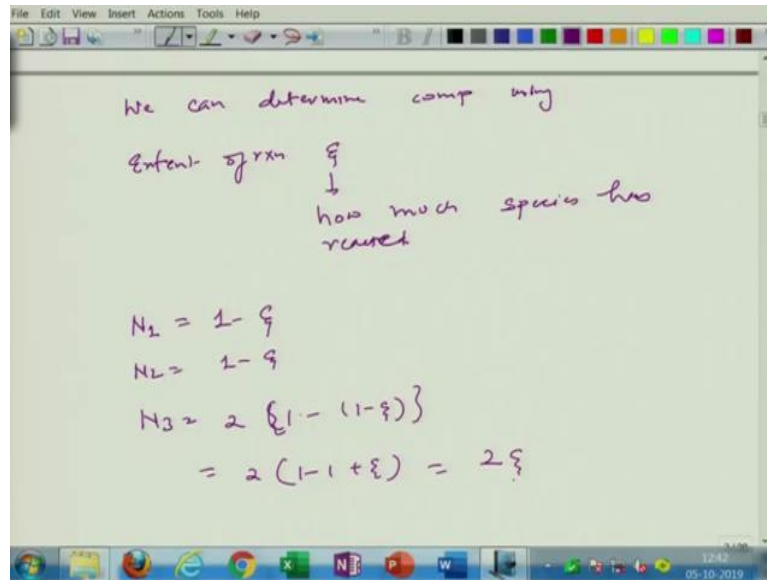 File Edit View Insert Actions Tools Help
We can determine comp using
Extent of rxn ξ
↓
how much species has
reacted
N1 = 1 - ξ
N2 = 1 - ξ
N3 = 2 {1 - (1-ξ)}
= 2 (1-1+ξ) = 2ξ
12:42
05-10-2019